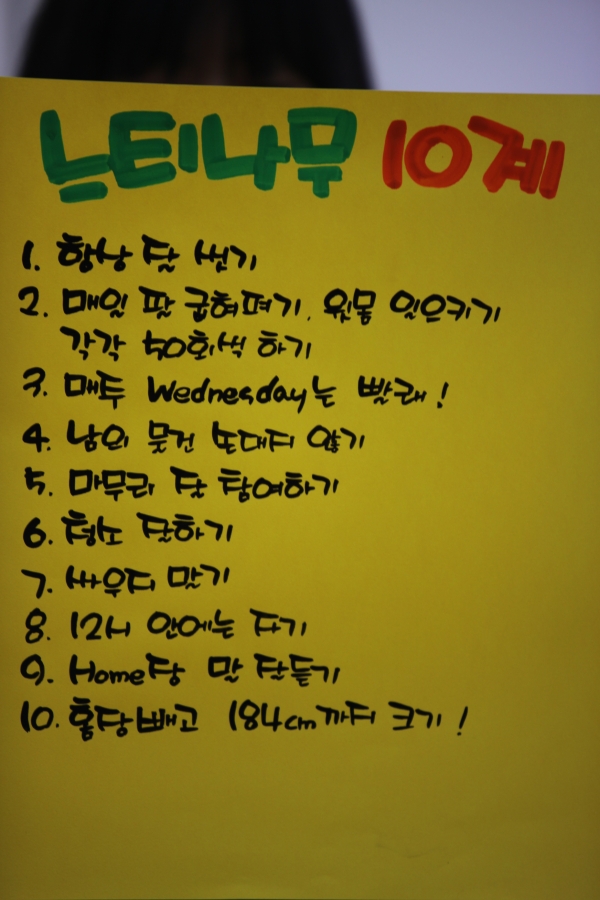 느티나무 10계
1. 항상 잘 씻기
2. 매일 팔 굽혀펴기, 윗몸 일으키기
각각 50회씩 하기
3. 매주 Wednesday는 빨래!
4. 남의 물건 손대지 않기
5. 마무리 잘 참여하기
6. 청소 잘하기
7. 싸우지 말기
8. 12시 안에는 자기
9. Home장 말 잘듣기
10. 홈장빼고 184cm까지 크기!